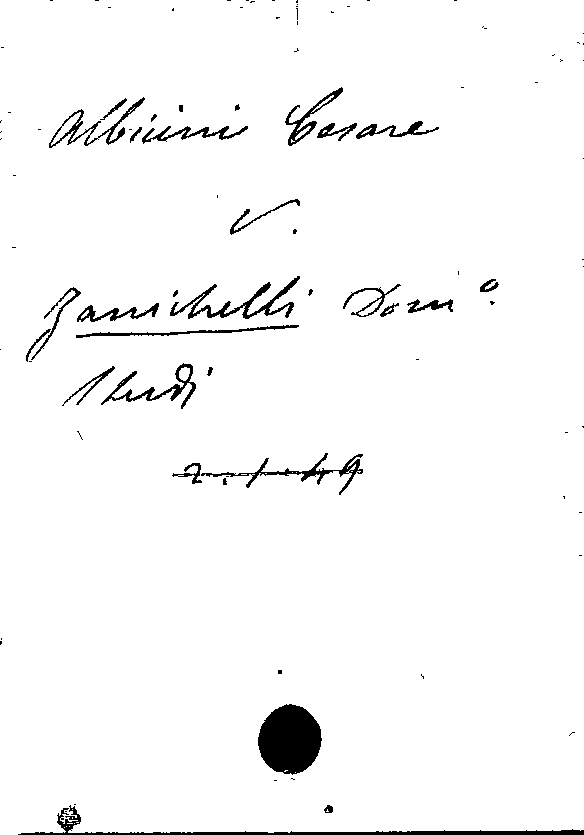 Albicini Cesare
v.
Zanichelli Dom°.
Studi
2.1.49